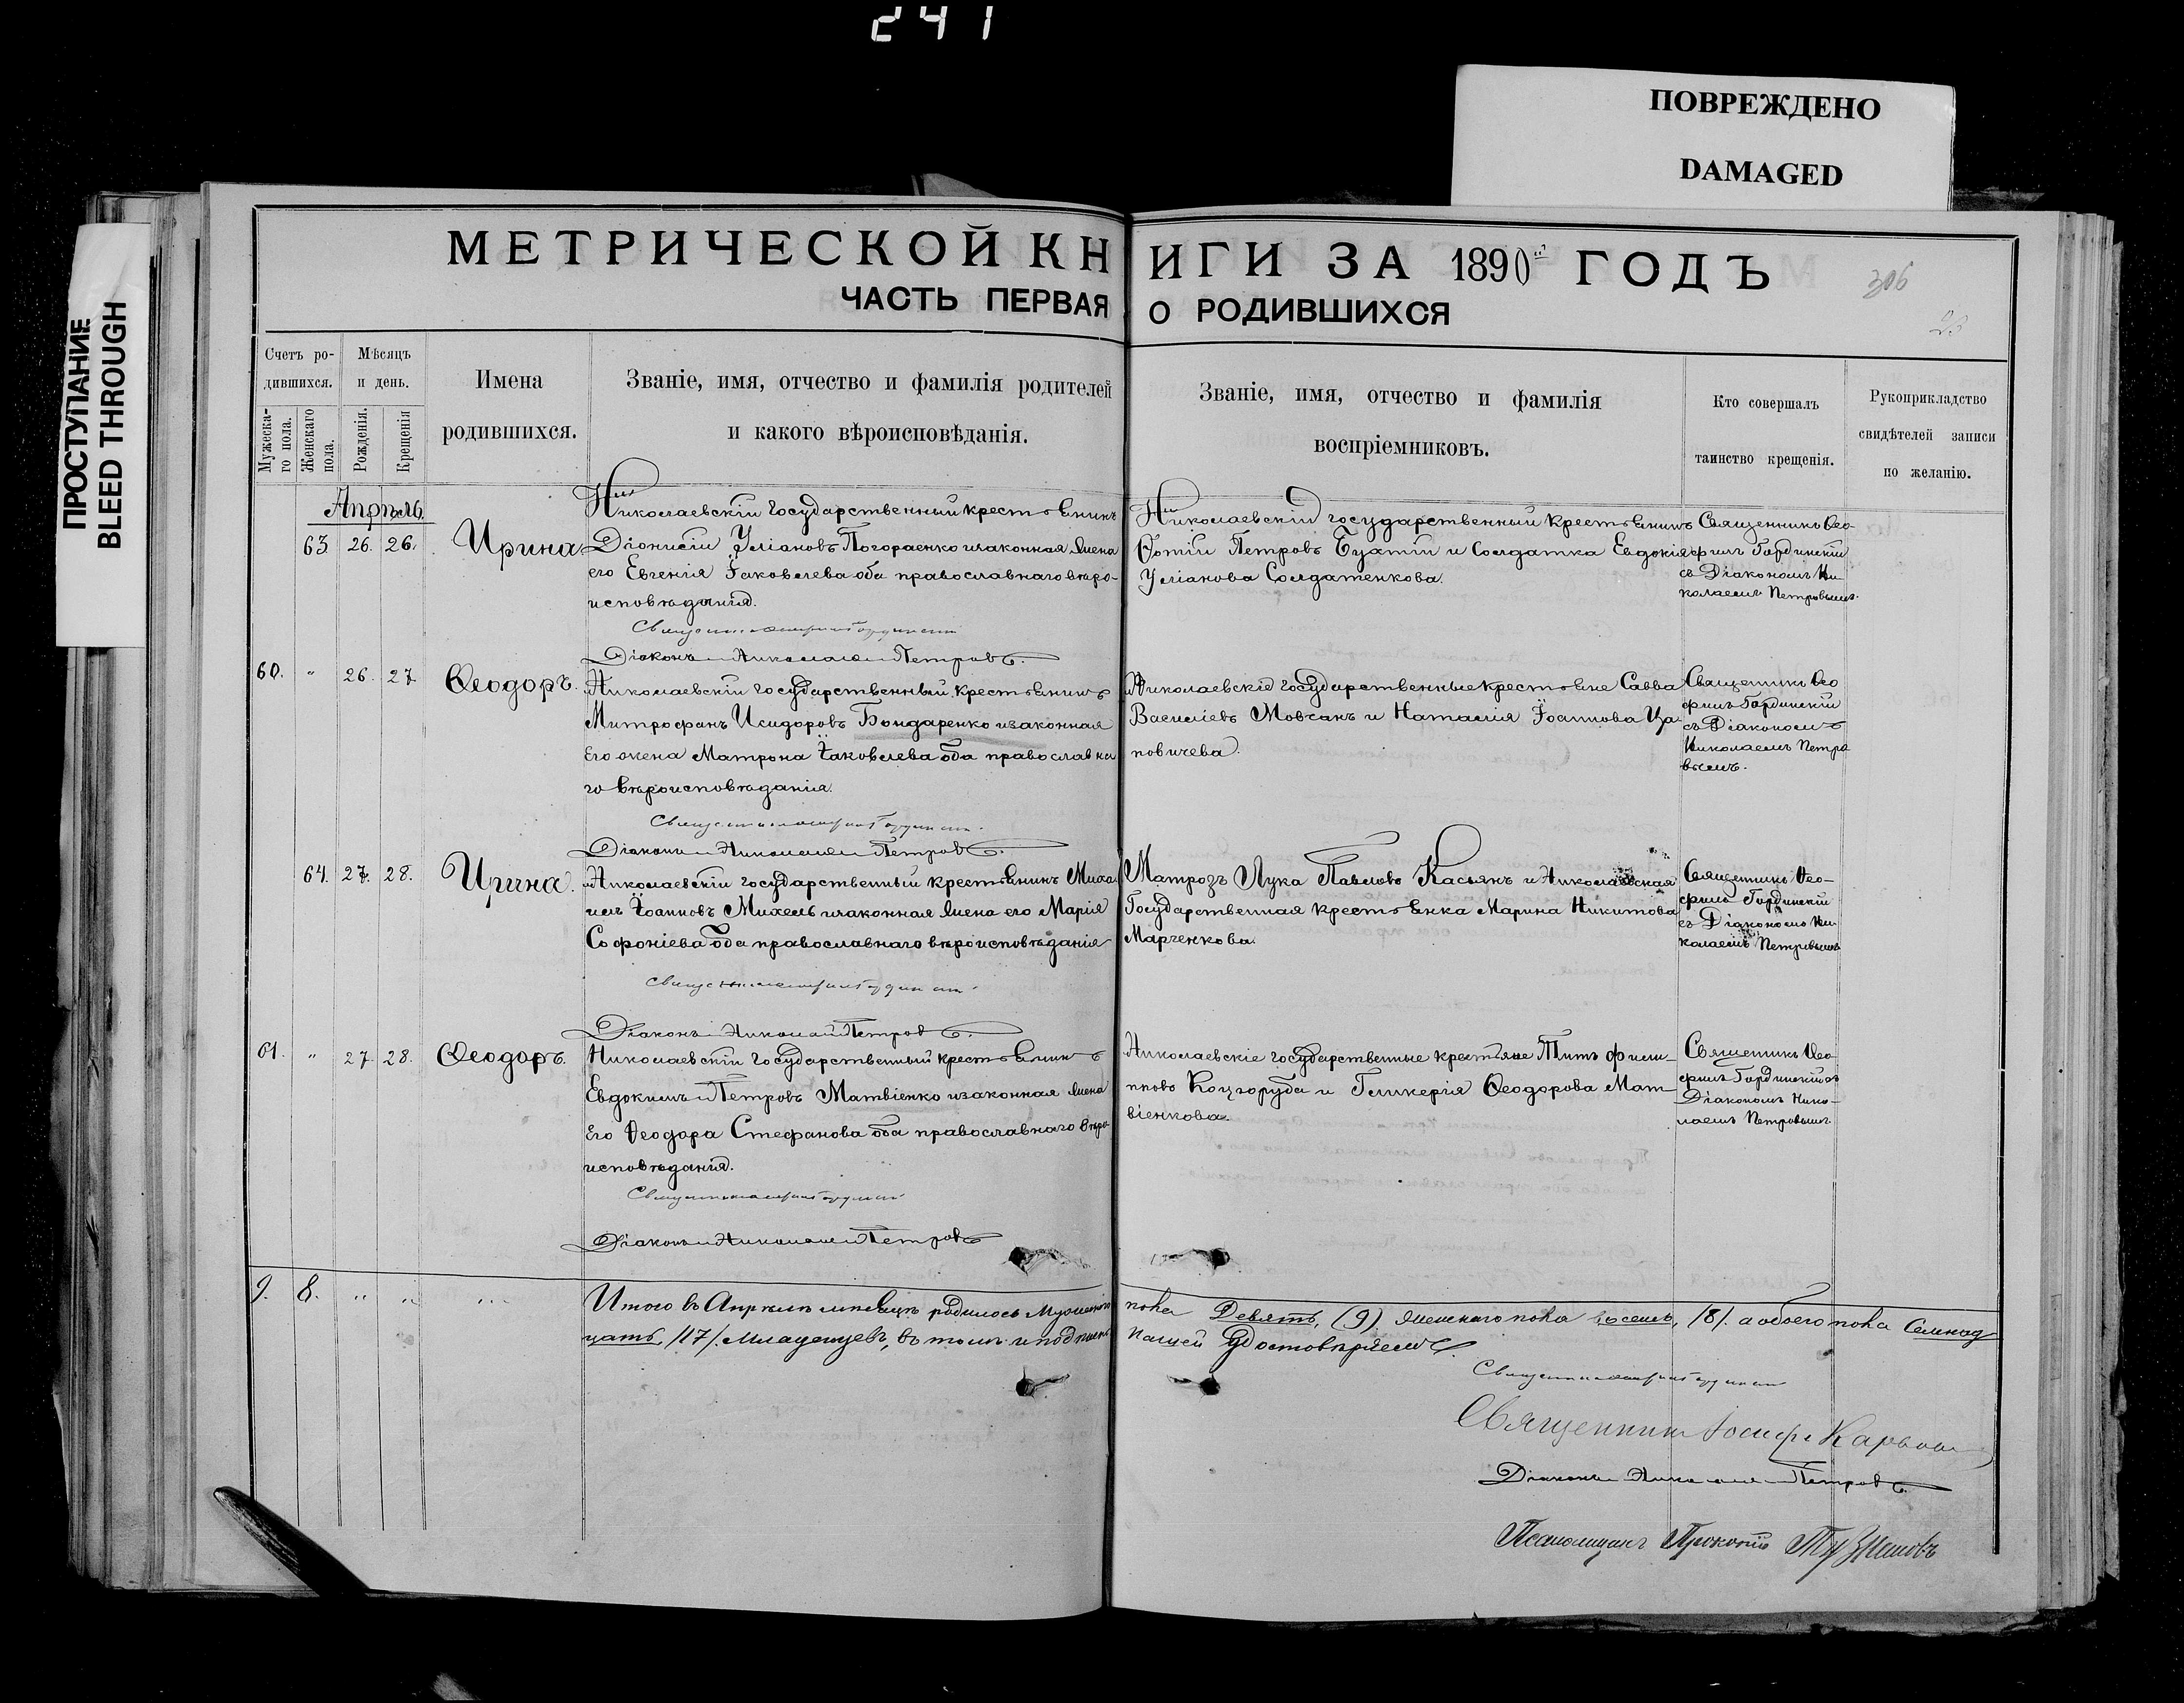 241
ПОВРЕЖДЕНО
DAMAGED
ПРОСТУПАНИЕ
BLEED THROUGH
МЕТРИЧЕСКОЙ КНИГИ ЗА 1890й ГОДЪ
306
ЧАСТЬ ПЕРВАЯ О РОДИВШИХСЯ
23
Счетъ ро-
дившихся.
Мужеска-
го пола.
Женскаго
пола.
Мѣсяцъ
и день.
Рожденія.
Крещенія
Имена
родившихся.
Званіе, имя, отчество и фамилія родителей
и какого вѣроисповѣданія.
Званіе, имя, отчество и фамилія
воспріемниковъ.
Кто совершалъ
таинство крещенія.
Рукоприкладство
свидѣтелей записи
по желанію.
Апрѣль
63 26. 26. Ирина
Николаевскій государственный крестьянинъ
Діонисій Уліановъ Погораенко изаконная жена
его Евгенія Іаковлева оба православнаго вѣро-
исповѣданія.
Діаконъ Николай Петровъ.
Николаевскій государственный крестьянинъ
Фотій Петровъ Бухтій и Солдатка Евдокія
Уліанова Солдатенкова.
Священникъ Ѳео-
филъ Гординскій
съ Діакономъ Ни-
колаемъ Петровымъ.
60. " 26. 27. Ѳеодоръ.
Николаевскій государственный крестьянинъ
Митрофанъ Исидоровъ Бондаренко изаконная
его жена Матрона Іаковлева оба православна
го вѣроисповѣданія.
Діаконъ Николай Петровъ.
Николаевскіе государственные крестьяне Савва
Василіевъ Мовчанъ и Наталія Іоаннова Ца-
повичева.
Священникъ Ѳео
филъ Гординскій
съ Діакономъ
Николаемъ Петро
вымъ.
64. 27. 28. Ирина.
Николаевскій государственный крестьянинъ Миха
илъ Іоанновъ Михель изаконная жена его Марія
Софоніева оба православнаго вѣроисповѣданія
Діаконъ Николай Петровъ.
Матрозъ Лука Павловъ Касьянъ и Николаевская
Государственная крестьянка Марина Никитова
Марченкова.
Священникъ Ѳео-
филъ Гординскій
съ Діакономъ Ни-
колаемъ Петровымъ
61. " 27. 28. Ѳеодоръ.
Николаевскій государственный крестьянинъ
Евдокимъ Петровъ Матвіенко изаконная жена
его Ѳеодора Стефанова оба православнаго вѣро
исповѣданія.
Діаконъ Николай Петровъ
Николаевскіе государственные крестьяне Титъ Фили-
пповъ Коцгоруба и Гликерія Ѳеодорова Мат-
віенкова.
Священникъ Ѳео-
филъ Гординскій съ
Діакономъ Нико-
лаемъ Петровымъ
9. 8. " " "
Итого въ Апрѣлѣ мѣсяцѣ родилось Мужескаго пола Девять, (9). Женскаго пола восемь, (8). а обоего пола Семнад
цать, (17). Младенцевъ, въ томъ и подписью нашей удостовѣряемъ.
Священникъ Іосифъ
Діаконъ Николай Петровъ.
Псаломщикъ Прокопій